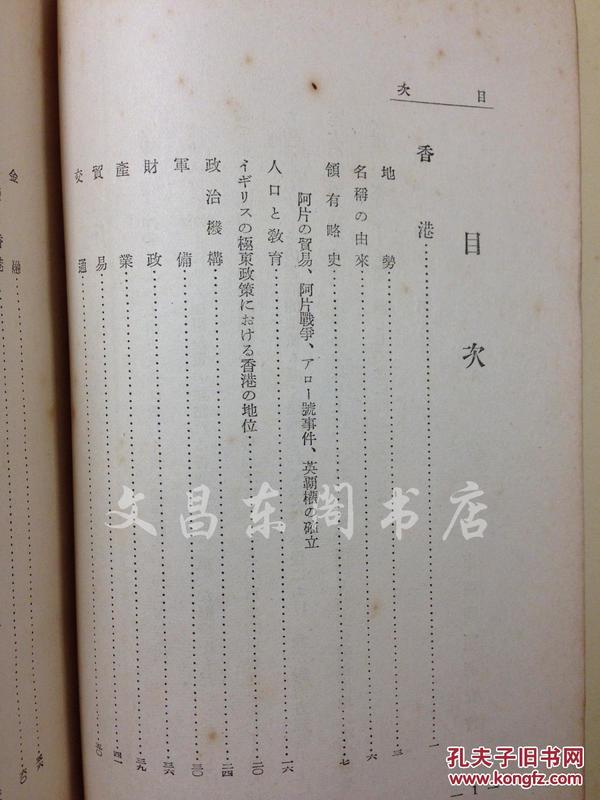 目次
目次
香港 一
地勢 三
名稱の由來 六
領有略史 七
阿片の貿易、阿片戰爭、アロー號事件、英覇權の確立
人口と敎育 一六
イギリスの極東政策における香港の地位 二〇
政治機構 二四
軍備 三〇
財政 三六
產業 三九
貿易 四一
交通 五〇
— 1 —
文昌东阁书店
孔夫子旧书网
www.kongfz.com